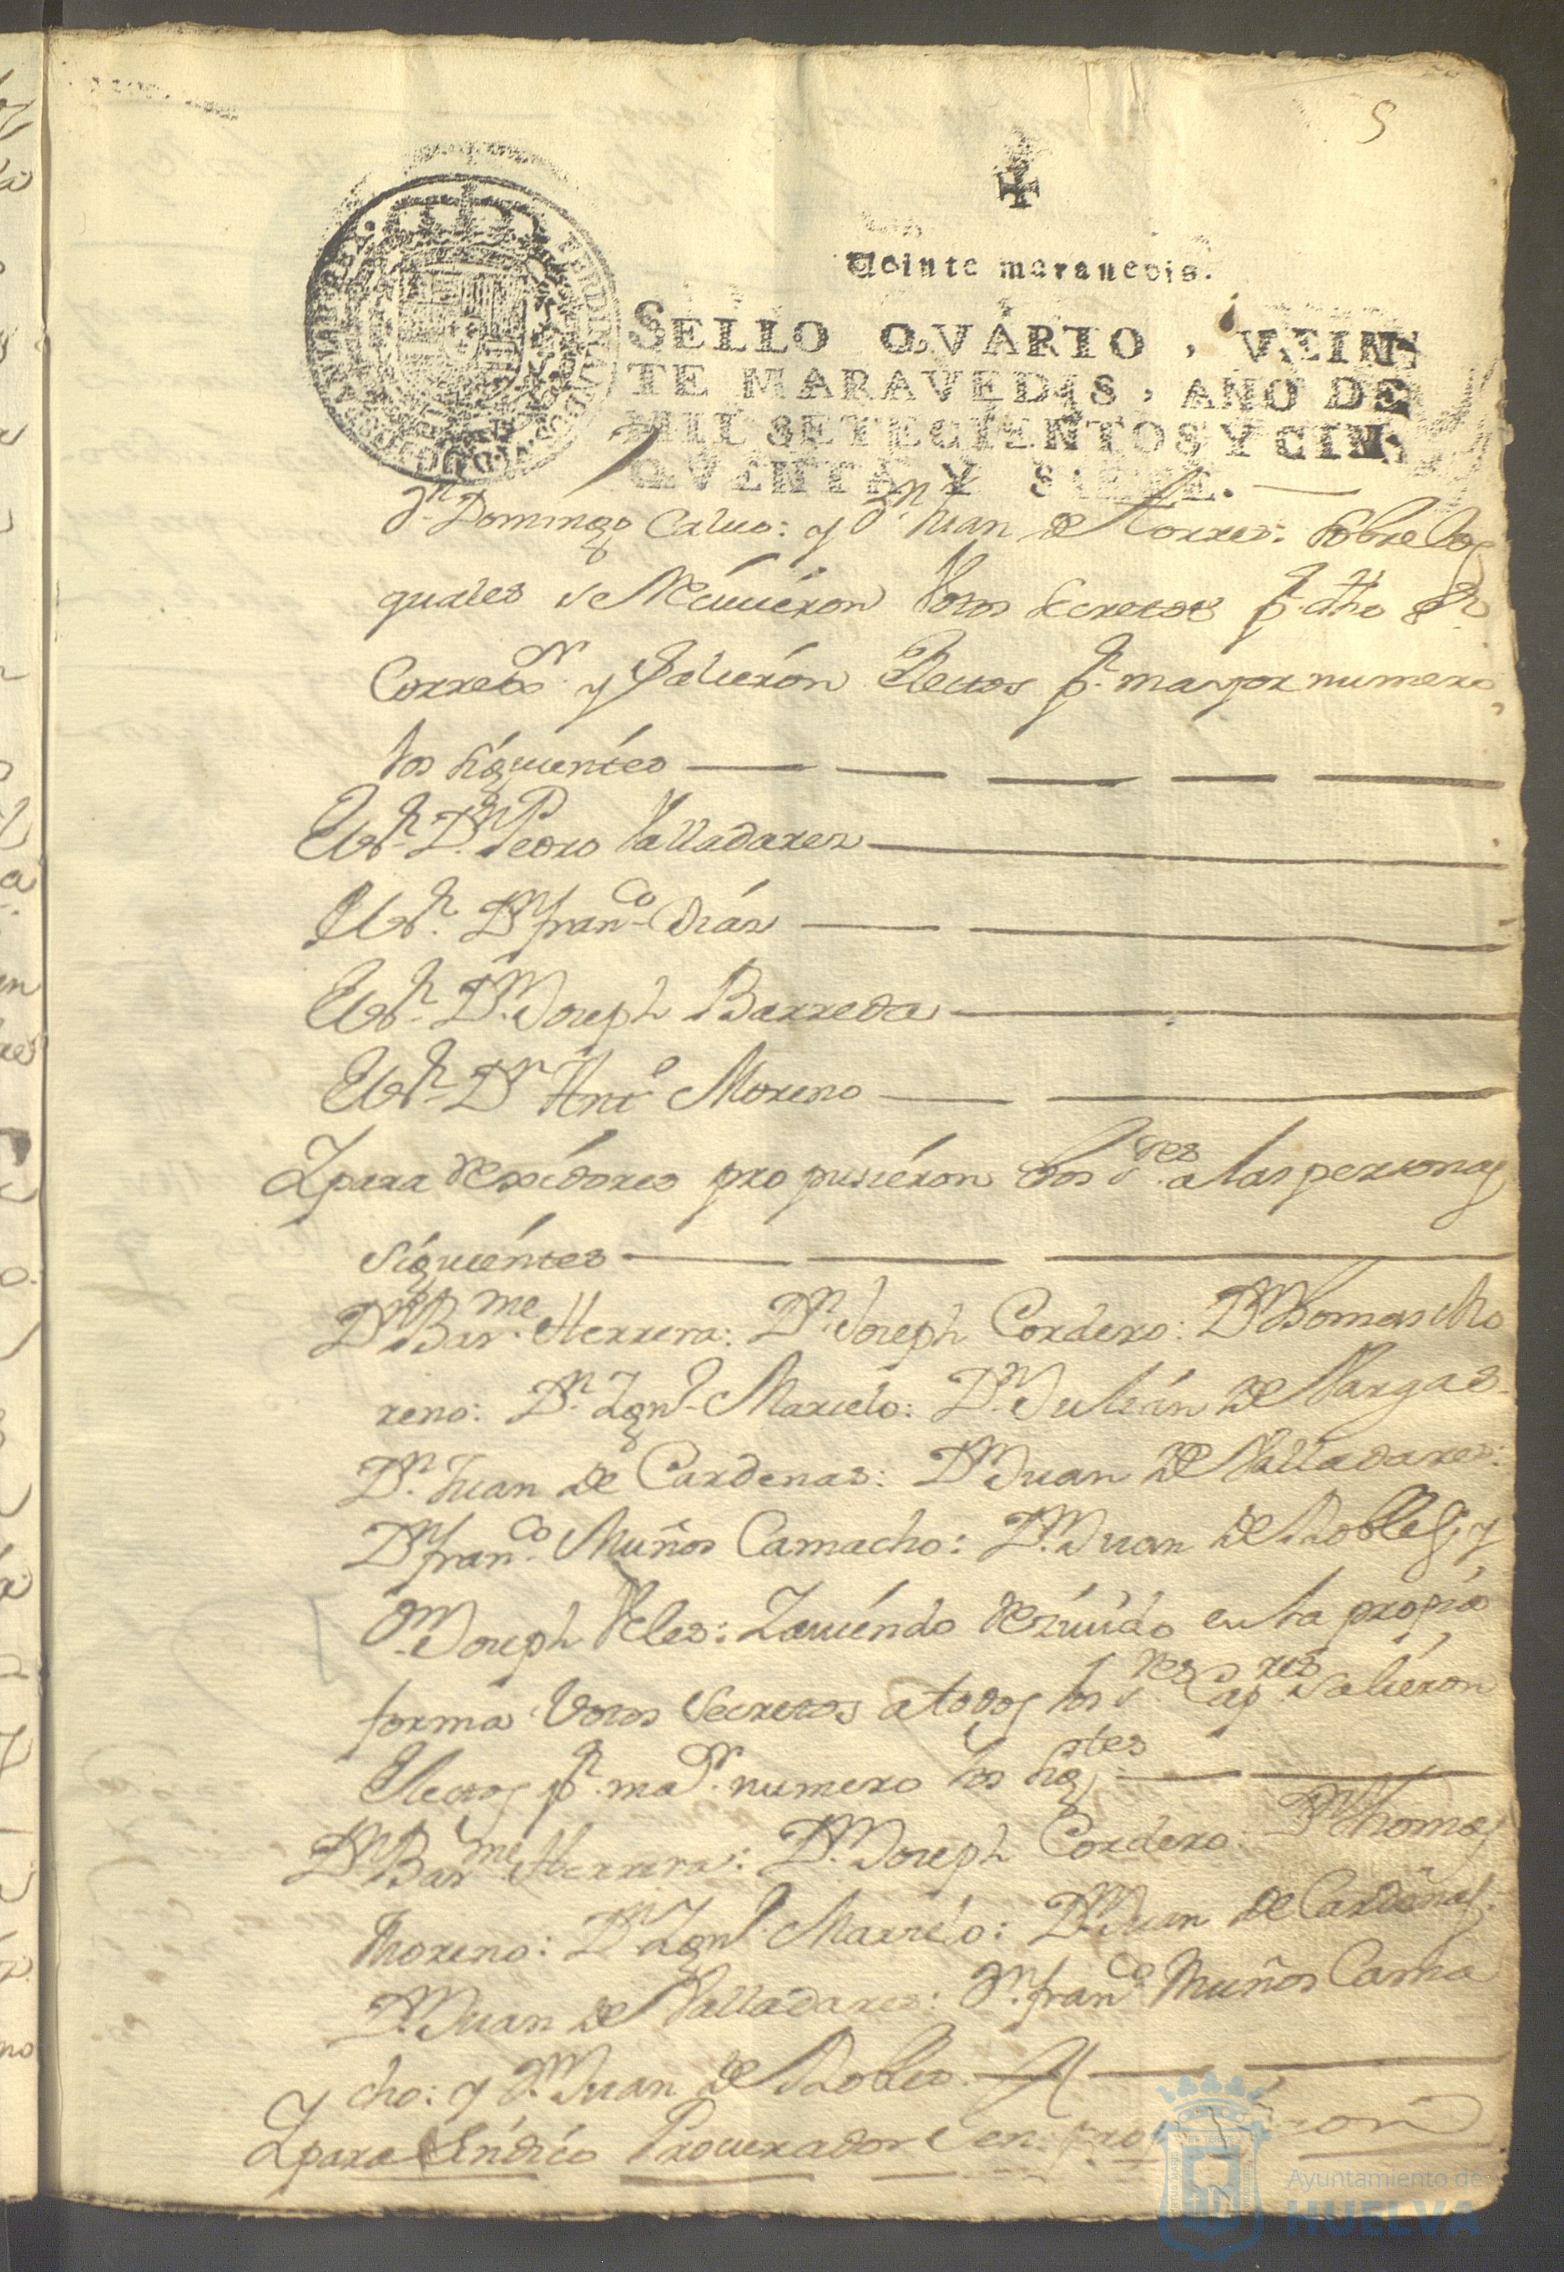 5
Veinte maravedis.
SELLO QVARTO, VEIN
TE MARAVEDIS, AÑO DE
MIL SETECIENTOS Y CIN
QVENTA Y SIETE.
Dn. Domingo Calvo: y Dn. Juan de Torres: sobre los
quales se recivieron votos secretos pr. dho Sr
Corregor. y salieron electos pr. mayor numero
los siguientes
El Sr. Dn. Pedro Valladares
El Sr. Dn. Franco. Dias
El Sr. Dn. Joseph Barreda
El Sr. Dn. Anto. Moreno
Y para Rexidores propusieron dhos Sres. a las personas
siguientes
Dn. Barme. Herrera: Dn. Joseph Cordero: Dn. Thomas Mo
reno: Dn. Ygno. Marcelo: Dn. Julian de Vargas
Dn. Juan de Cardenas: Dn. Juan de Valladares:
Dn. Franco. Muños Camacho: Dn. Juan de Robles, y
Dn. Joseph Veles: Y aviendo rezivido en la propia
forma votos secretos a todos los Sres. Capres. salieron
electos pr. maor. numero los sigtes.
Dn. Barme. Herrera: Dn. Joseph Cordero: Dn. Thomas
Moreno: Dn. Ygno. Marcelo: Dn. Juan de Cardenas:
Dn. Juan de Valladares: Dn. Franco. Muños Cama
cho: y Dn. Juan de Robles.
Y para Sindico Procurador
Ayuntamiento de
HUELVA